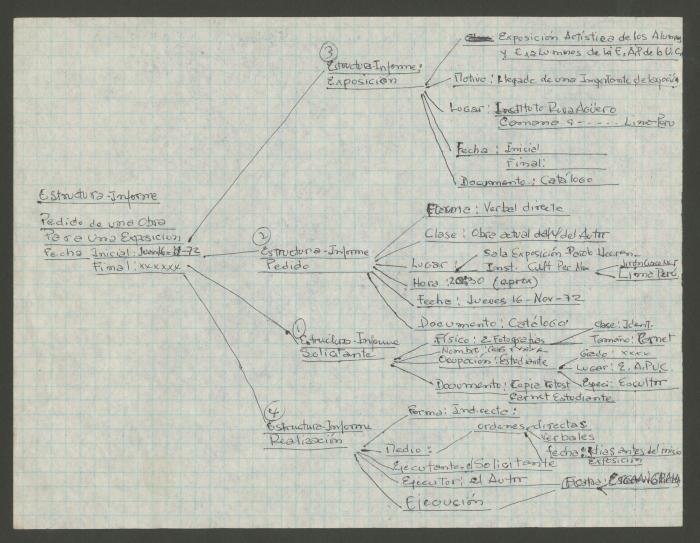 Estructura-Informe
Pedido de una Obra
Para Una Exposicion
Fecha Inicial: Jueves-16-11-72
Final: xxxxxx
3
Estructura-Informe:
Exposición
Exposición Artística de los Alumnos
y Exalumnos de la E.A.P. de la U.C.
Motivo: llegada de una
Lugar: Instituto Riva Agüero
Camana 9-..... Lima-Perú
Fecha: Inicial
Final:
Documento: Catálogo
2
Estructura-Informe
Pedido
Forma: Verbal directe
Clase: Obra actual del Autor
Lugar: Sala Exposición
Inst. Cult Per
Lima Perú
Hora: 20:30 (aprox)
Fecha: Jueves 16-Nov-72
Documento: Catálogo
1
Estructura-Informe
Solicitante
Físico: 2 Fotografías
Nombre:
Ocupación: Estudiante
Documento: Copia Fotost
Carnet Estudiante
Clase: Ident.
Tamaño: Carnet
Grado: xxxx
Lugar: E.A.PUC
Espec: Escultor
4
Estructura-Informe
Realización
Forma: Indirecta:
Medio: ordenes directas
Verbales
fecha: dias antes del
Exposición
Ejecutante: el Solicitante
Ejecutor: el Autor
Ejecución
Forma: